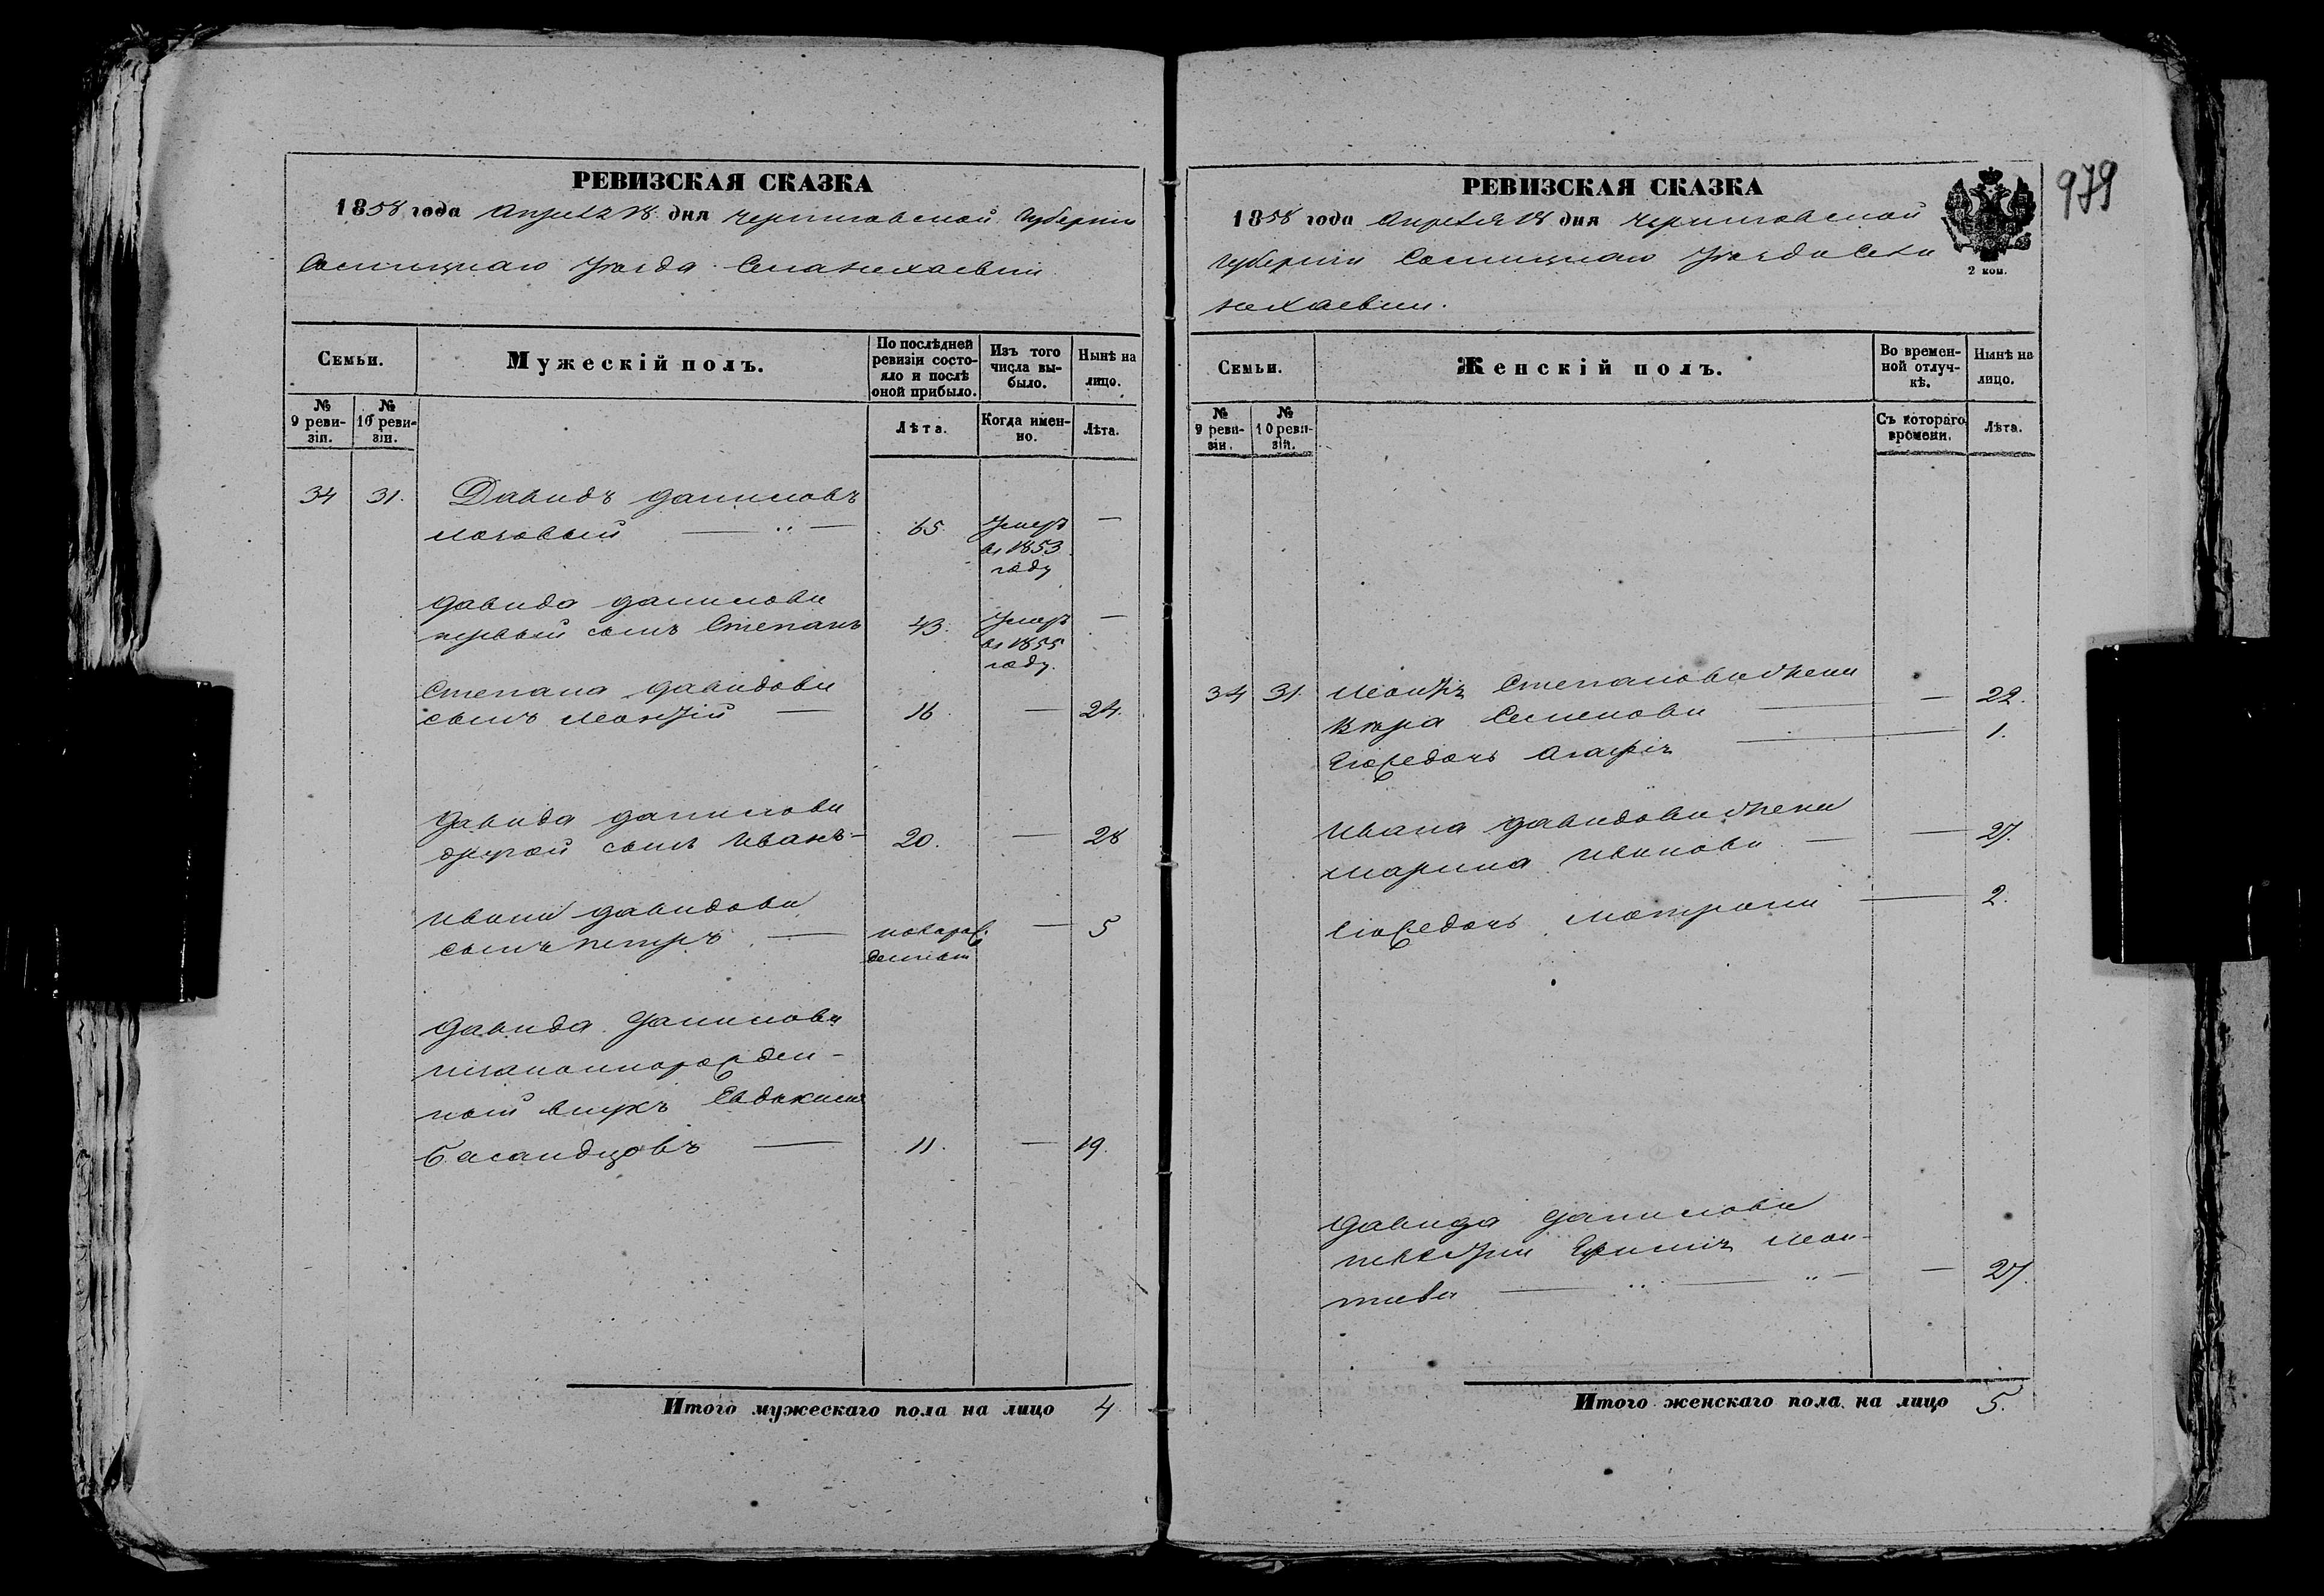 РЕВИЗСКАЯ СКАЗКА
1858 года Апреля 18 дня Черниговской Губернии
Сосницкаго Уезда Села
Семьи.
Мужескій полъ.
По послѣдней ревизіи состояло и послѣ оной прибыло.
Изъ того числа выбыло.
Нынѣ на лицо.
№ 9 ревизіи.
№ 10 ревизіи.
Лѣта.
Когда именно.
Лѣта.
34 31. Давидъ Даниловъ
65. Умеръ —
въ 1853
году
Давида Данилова
первый сынъ Степанъ 43. Умеръ —
въ 1855
году.
Степана Давидова
сынъ — 16. — 24.
Давида Данилова
другой сынъ Иванъ — 20. — 28
Ивана Давидова
сынъ Петръ — новорож — 5
денный
Давида Данилова
незаконнорожден-
ный внукъ Евдокимъ
— 11. — 19.
Итого мужескаго пола на лицо 4
РЕВИЗСКАЯ СКАЗКА
1858 года Апреля 18 дня Черниговской
Губернии Сосницкаго Уезда Села
979
2 коп.
Семьи.
Женскій полъ.
Во временной отлучкѣ.
Нынѣ на лицо.
№ 9 ревизіи.
№ 10 ревизіи.
Съ котораго времени.
Лѣта.
34 31. Степанова жена
Семенова — — 22.
Егождочь Агафія — 1.
Ивана Давидова жена
Марина Иванова — — 27.
Егождочь Матрона — 2.
Давида Данилова
невестка
— — 27.
Итого женскаго пола на лицо 5.